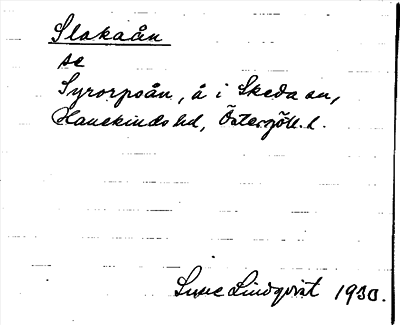 Slakaån
se
Syrorpoån, å i Skeda sn,
Hanekinds hd, Östergötl. l.
Sune Lindqvist 1930.